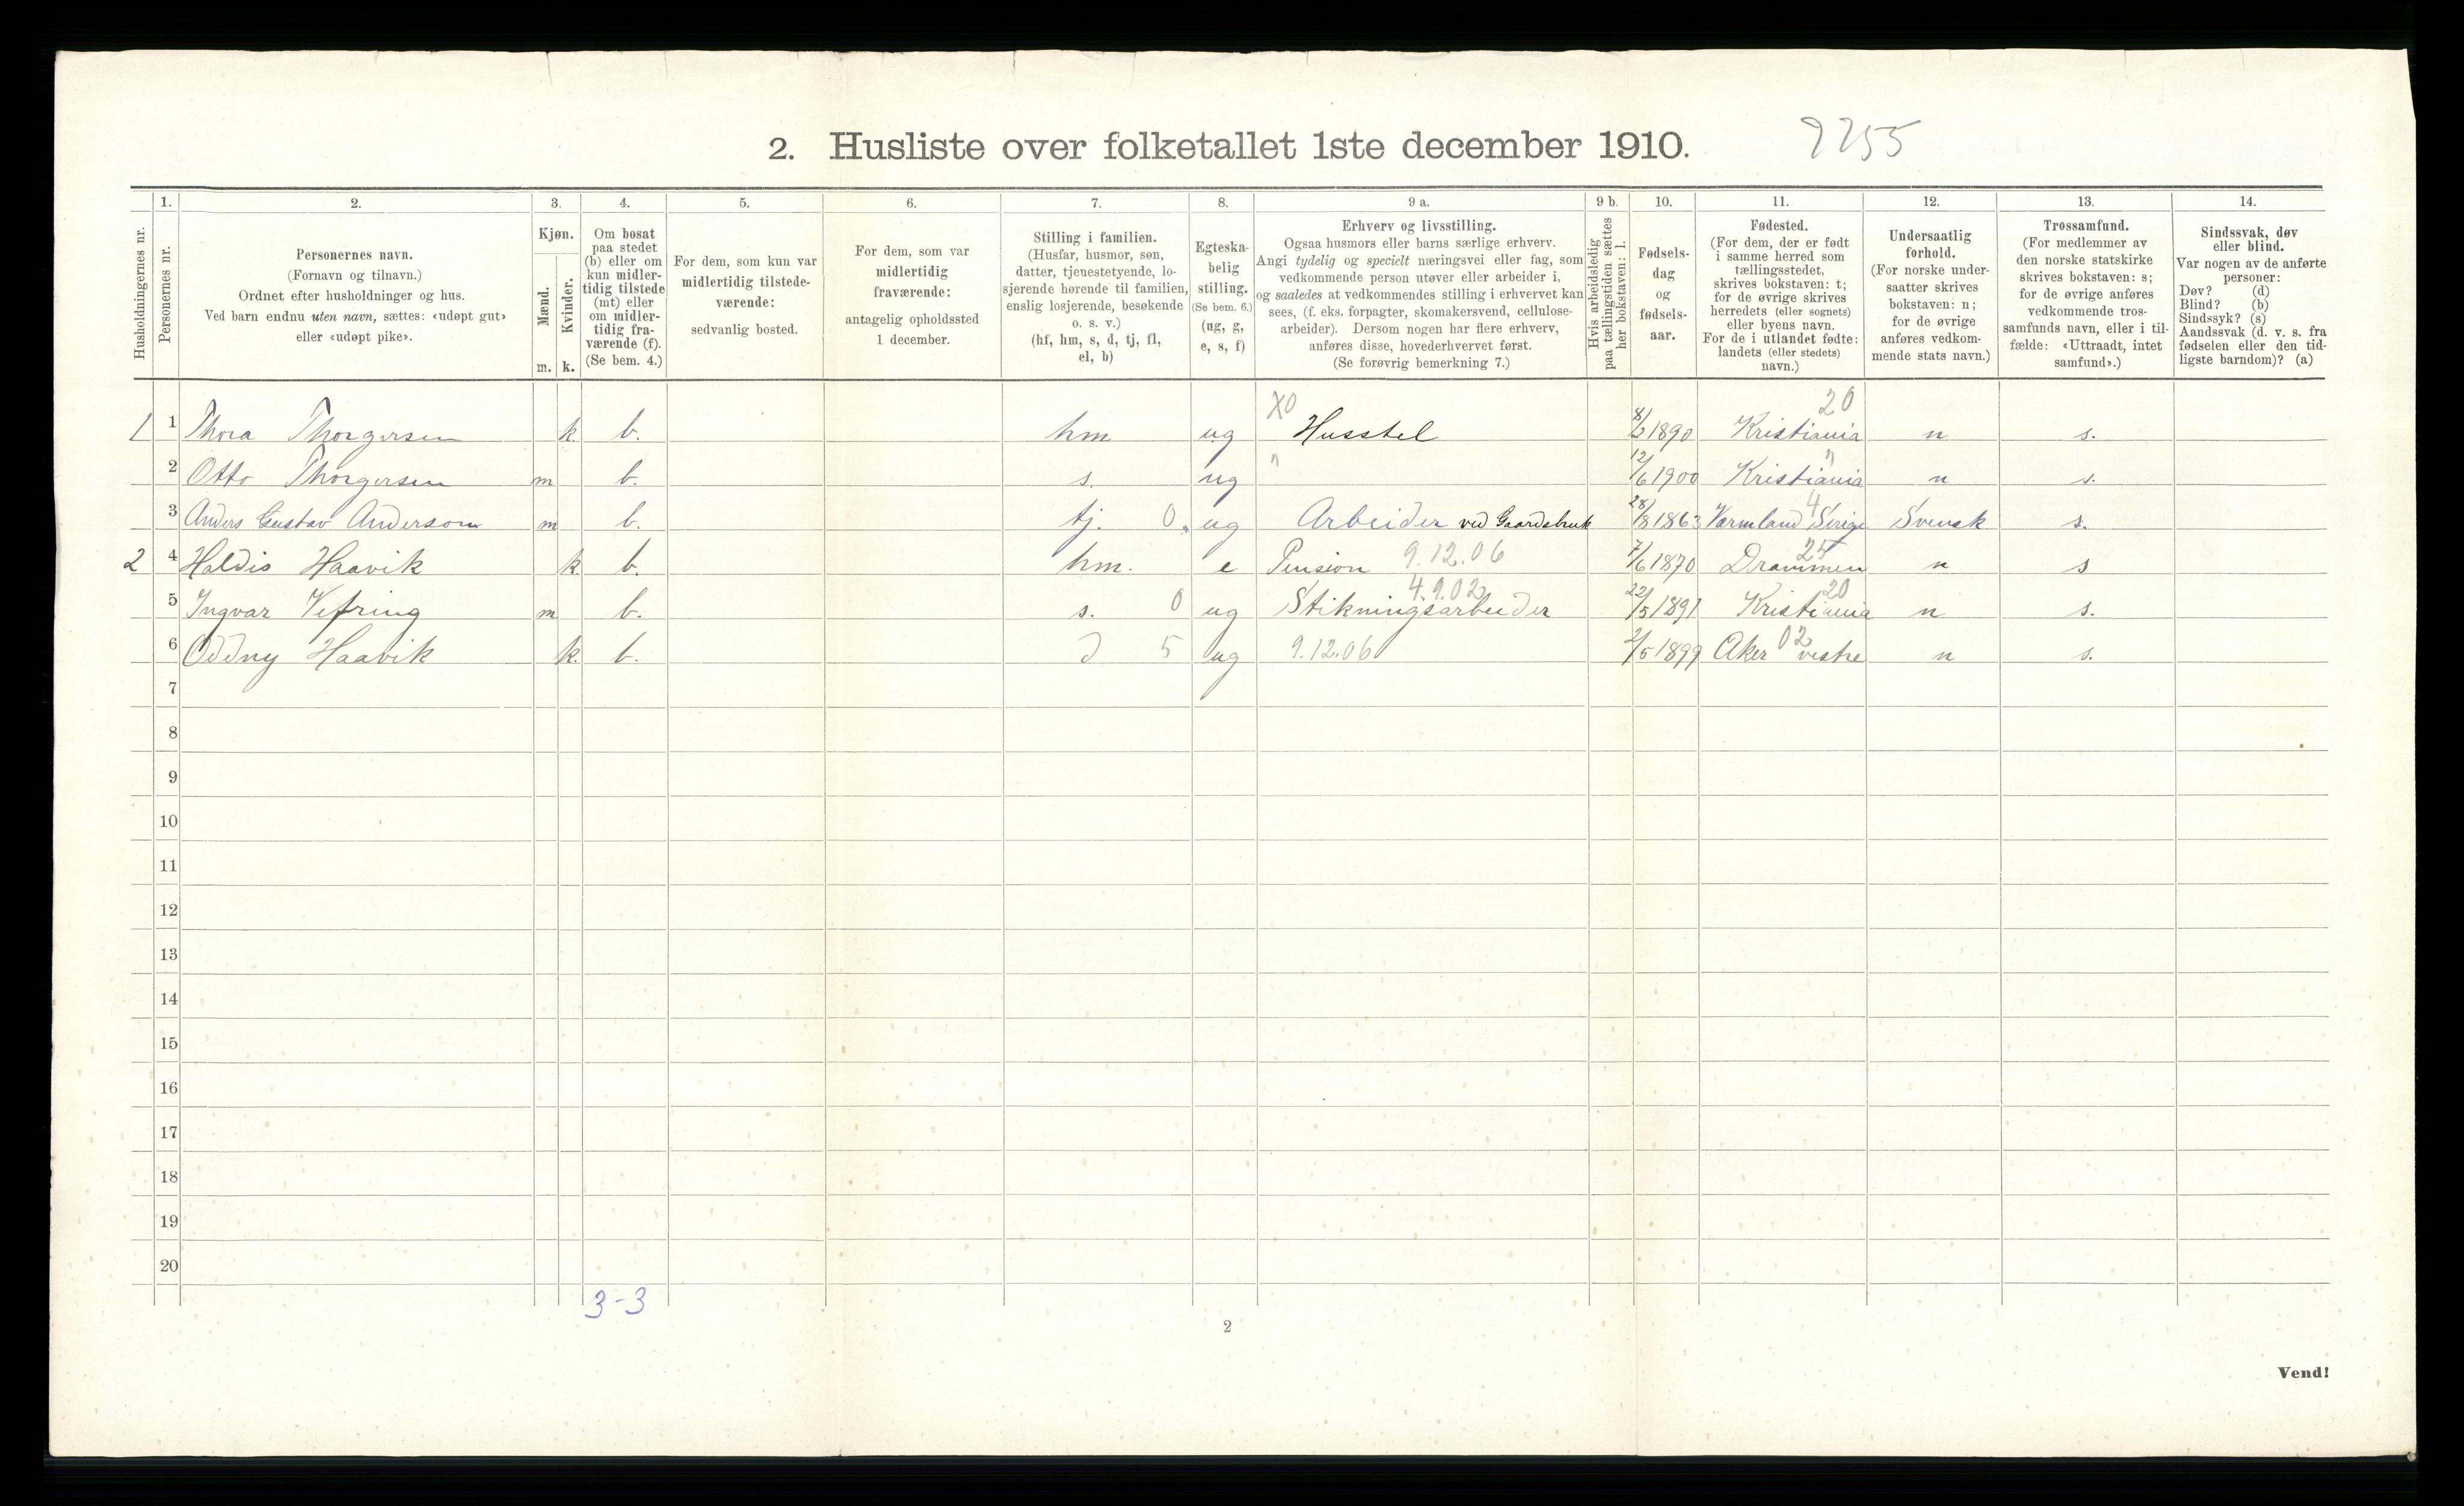 2. Husliste over folketallet 1ste december 1910. 9255
Husholdningernes nr.
1. Personernes nr.
2. Personernes navn.
(Fornavn og tilnavn.)
Ordnet efter husholdninger og hus.
Ved barn endnu uten navn, sættes: «udøpt gut»
eller «udøpt pike».
3. Kjøn.
Mænd. m.
Kvinder. k.
4. Om bosat
paa stedet
(b) eller om
kun midler-
tidig tilstede
(mt) eller
om midler-
tidig fra-
værende (f).
(Se bem. 4.)
5. For dem, som kun var
midlertidig tilstede-
værende:
sedvanlig bosted.
6. For dem, som var
midlertidig
fraværende:
antagelig opholdssted
1 december.
7. Stilling i familien.
(Husfar, husmor, søn,
datter, tjenestetyende, lo-
sjerende hørende til familien,
enslig losjerende, besøkende
o. s. v.)
(hf, hm, s, d, tj, fl,
el, b)
8. Egteska-
belig
stilling.
(Se bem. 6.)
(ug, g,
e, s, f)
9 a. Erhverv og livsstilling.
Ogsaa husmors eller barns særlige erhverv.
Angi tydelig og specielt næringsvei eller fag, som
vedkommende person utøver eller arbeider i,
og saaledes at vedkommendes stilling i erhvervet kan
sees, (f. eks. forpagter, skomakersvend, cellulose-
arbeider). Dersom nogen har flere erhverv,
anføres disse, hovederhvervet først.
(Se forøvrig bemerkning 7.)
9 b. Hvis arbeidsledig
paa tællingstiden sættes
her bokstaven: l.
10. Fødsels-
dag
og
fødsels-
aar.
11. Fødested.
(For dem, der er født
i samme herred som
tællingsstedet,
skrives bokstaven: t;
for de øvrige skrives
herredets (eller sognets)
eller byens navn.
For de i utlandet fødte:
landets (eller stedets)
navn.)
12. Undersaatlig
forhold.
(For norske under-
saatter skrives
bokstaven: n;
for de øvrige
anføres vedkom-
mende stats navn.)
13. Trossamfund.
(For medlemmer av
den norske statskirke
skrives bokstaven: s;
for de øvrige anføres
vedkommende tros-
samfunds navn, eller i til-
fælde: «Uttraadt, intet
samfund».)
14. Sindssvak, døv
eller blind.
Var nogen av de anførte
personer:
Døv? (d)
Blind? (b)
Sindssyk? (s)
Aandssvak (d. v. s. fra
fødselen eller den tid-
ligste barndom)? (a)
X0 20
1 1 Thora Thorgersen k. b. hm ug Husstel 8/2 1890 Kristiania n s.
" "
2 Otto Thorgersen m b. s. ug 12/6 1900 Kristiania n s.
4
3 Anders Gustav Anderson m b. tj. 0. ug Arbeider ved Gaardsbruk 28/8 1863 Varmland Sverige Svensk s.
2 4 Haldis Haavik k b. hm. e Pension 9.12.06 7/6 1870 Drammen 25 n s
4.9.02 20
5 Ingvar Vefring m b. s. 0 ug Stikningsarbeider 22/5 1891 Kristiania n s.
6 Oddny Haavik k. b. d 5 ug 9.12.06 2/5 1899 Aker 02 vestre n s.
7
8
9
10
11
12
13
14
15
16
17
18
19
20
3-3
2
Vend!